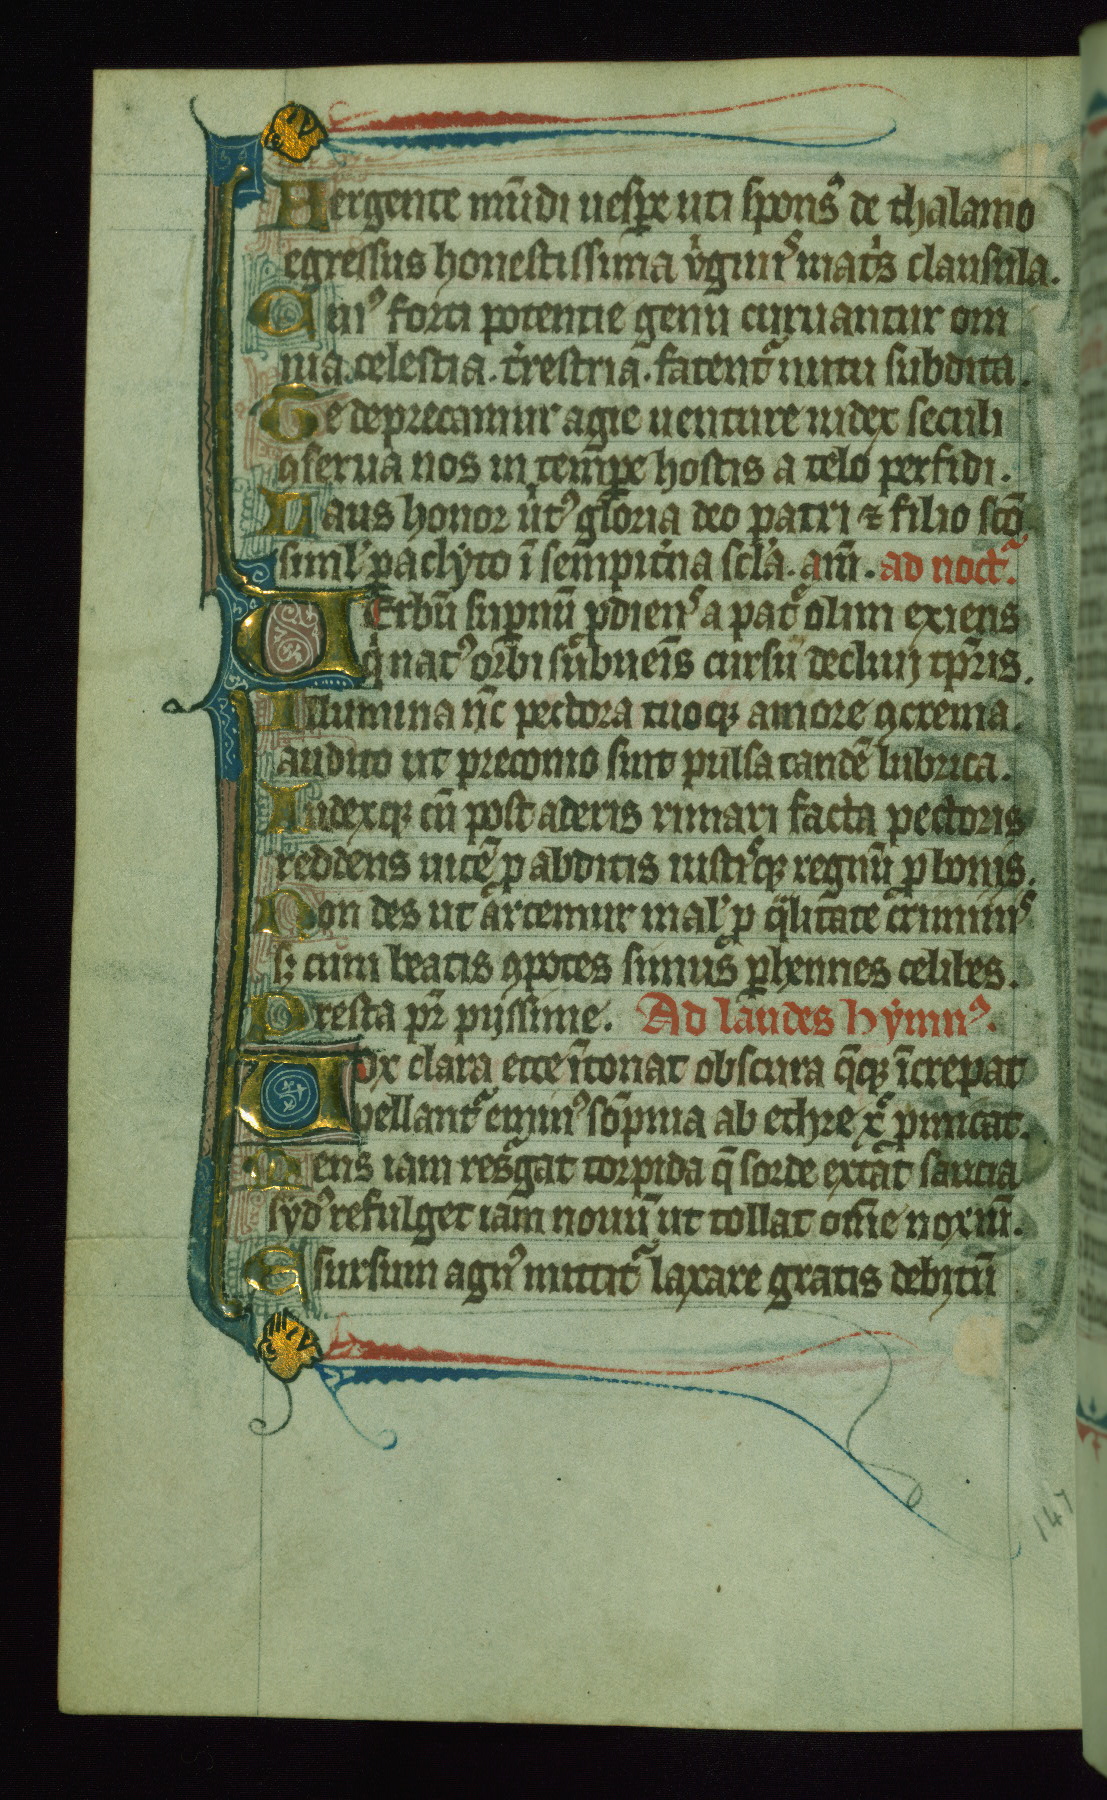 Uergente mūdi uesp̄e uti spons᷒ de thalamo
egressus honestissima v᷒ginis mat᷒s clausula.
Cuiꝰ forti potentie genu curuantur om
nia. celestia. t᷒restria. fatent᷒ nutu subdita.
Te deprecamur agie uenture iudex seculi
ꝯserua nos in temp̄e hostis a telo perfidi.
Laus honor uͥtꝰ gloria deo patri ⁊ filio sc̄o
siml᷒ paclyto ī sempit᷒na sc̄la. am̄. ad noct᷒.
Uerbū sup̄nū ꝓdiens a pat᷒ olim exiens
qͥ natꝰ orbi sūbueīs cursū decliuj tꝑris.
Illumina nc̄ pectora tuoqꝫ amore ꝯcrema.
audito ut preconio sint pulsa tandē lubrica.
Iudexqꝫ cū post aderis rimari facta pectoris
reddens uicē ꝓ abditis iustisqꝫ regnū ꝓ bonis.
Non des ut artemur mal᷒ ꝓ qͣlitate criminis
sꝫ cum beatis ꝯpotes simus ꝑhennes celibes.
Presta pr̄ pijssime. Ad laudes hymnꝰ.
Uox clara ecce ītonat obscura qͣqꝫ īcrepat
pellant᷒ eminꝰ sōpnia ab ethre xp̄c promicat.
Mens iam resͬgat torpida q̄ sorde extat saucia
sydꝰ refulget iam nouū ut tollat om̄e noxiū.
E sursum agnꝰ mittit᷒ laxare gratis debitū
147